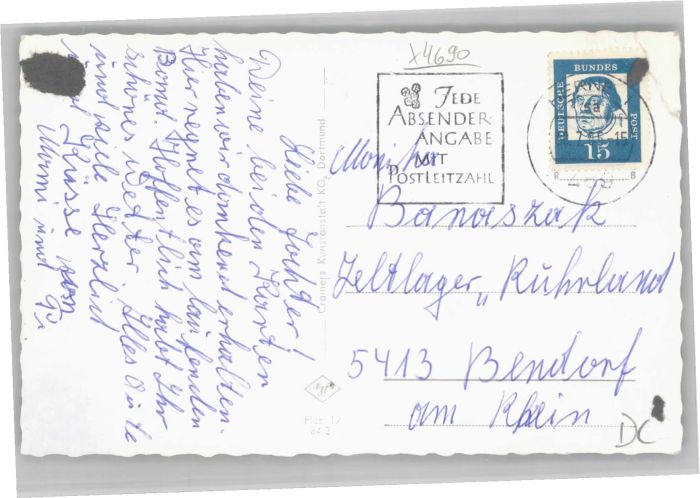 x4690
Liebe Tochter!
Deine beiden Karten
haben wir dankend erhalten.
Hir regnet es am laufenden
Band. Hoffentlich habt Ihr
schönes Wetter. Alles Gute
und viele Herzlid
Küsse von
Mami und
Cramers Kunstanstalt KG, Dortmund
JEDE
ABSENDER-
ANGABE
MIT
POSTLEITZAHL
DEUTSCHE
BUNDES
POST
15
R
B
Monika
Banaszak
Zeltlager „Ruhrland
5413 Bendorf
am Rhein
DC